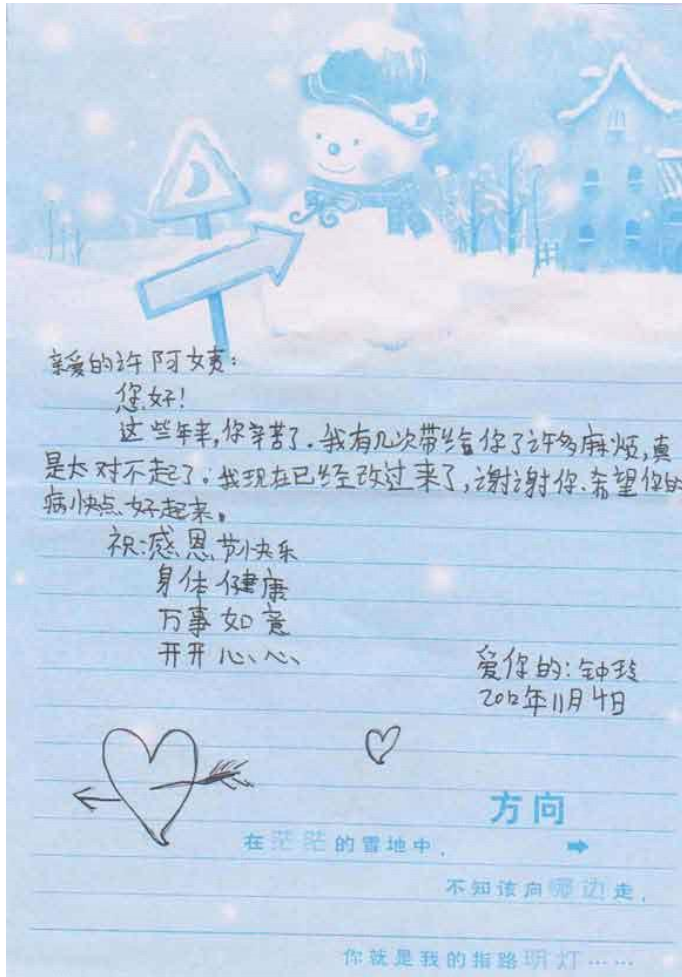 亲爱的许阿姨：
您好！
这些年来,你辛苦了。我有几次带给你了许多麻烦,真
是太对不起了。我现在已经改过来了,谢谢你.希望你的
病快点好起来。
祝:感恩节快乐
身体健康
万事如意
开开心心
爱你的:钟玲
年11月4日
方向
在茫茫的雪地中，
不知该向哪边走，
你就是我的指路明灯……